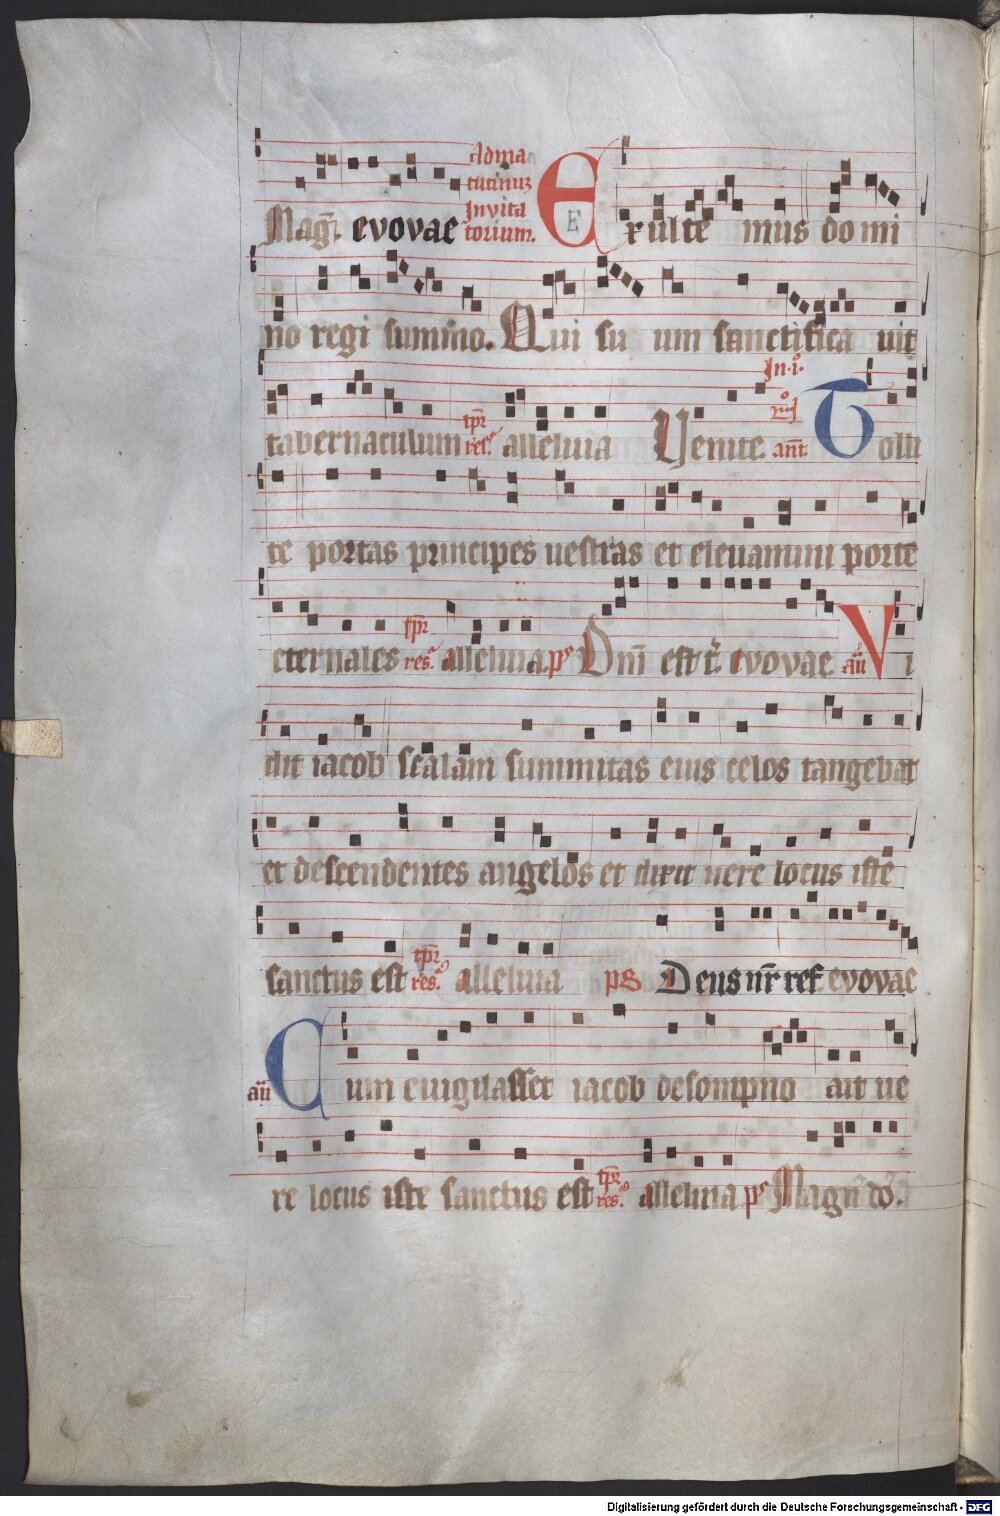 Magn̄. evovae Ad ma
tutinuȝ
Invita
torium. Exulte mus domi
no regi summo. Qui su um sanctifica vit
tabernaculum tp̄r res. alleluia Venite. In .i. no ant̄. Tolli
te portas principes uestras et eleuamini porte
eternales tp̄r res. alleluia. ps Dn̄i est t̄. evovae an̄ Vi
dit iacob scalam summitas eius celos tangebat
et descendentes angelos et dixit uere locus iste
sanctus est tp̄r res. alleluia ps Deus nr̄ ref. evovae
an̄ Cum euigilasset iacob de sompno ait ue
re locus iste sanctus est tp̄r res. alleluia ps Magn̄ do.
Digitalisierung gefördert durch die Deutsche Forschungsgemeinschaft - DFG